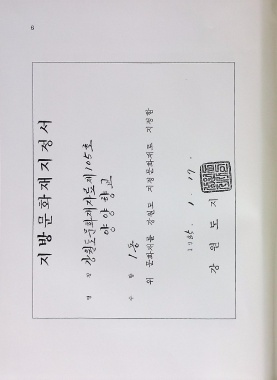 6
지방문화재지정서
강원도문화재자료제105호
명칭 양양향교
수량 1동
위 문화재를 강원도 지정문화재로 지정함
1985. 1. 17.
강원도지